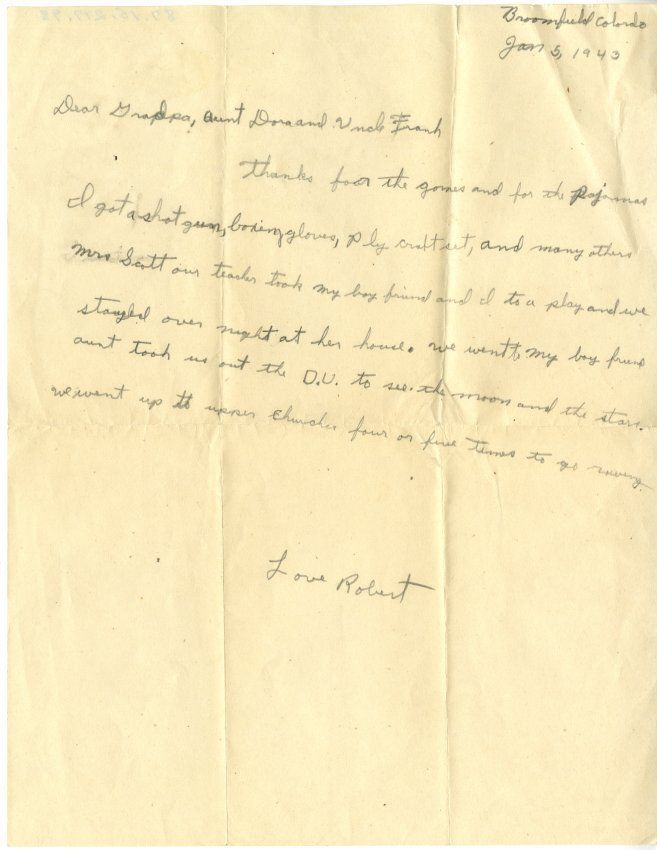 Broomfield Colordo
Jan 5, 1943
Dear Grapdpa, aunt Dora and Uncle Frank
thanks foor the games and for the Pajamas
I got a shot gun, boxing gloves, ply craft set, and many others
Mrs Scott our teacher took my boy friend and I to a play and we
stayed over night at her house. we went to my boy friend
aunt took us out the D.U. to see the moon and the stars.
we went up to upper Church four or five times to go
Love Robert